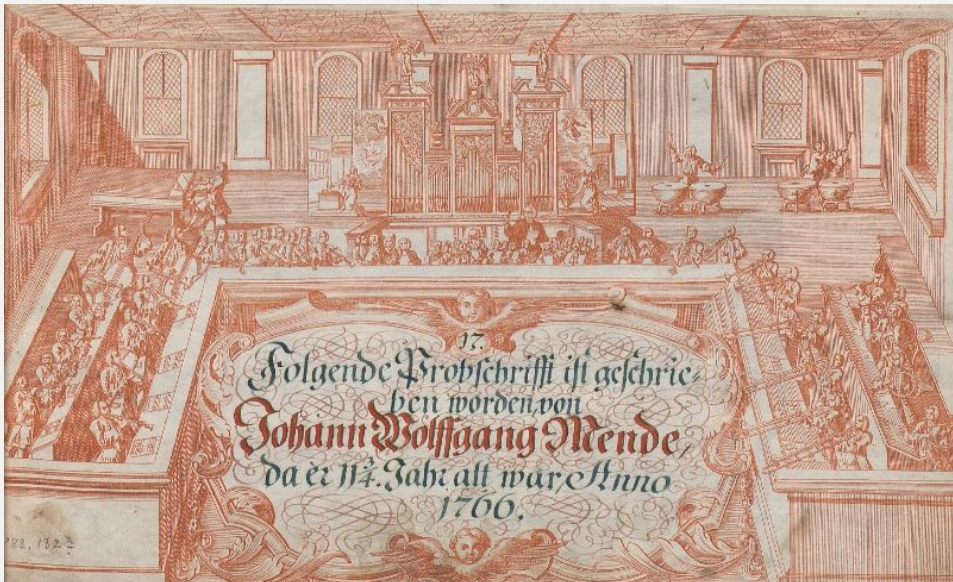 17.
Folgende Probschrifft ist geschrie=
ben worden von
Johann Wolffgang Mende,
da er 11¾. Jahr alt war, Anno
1766.